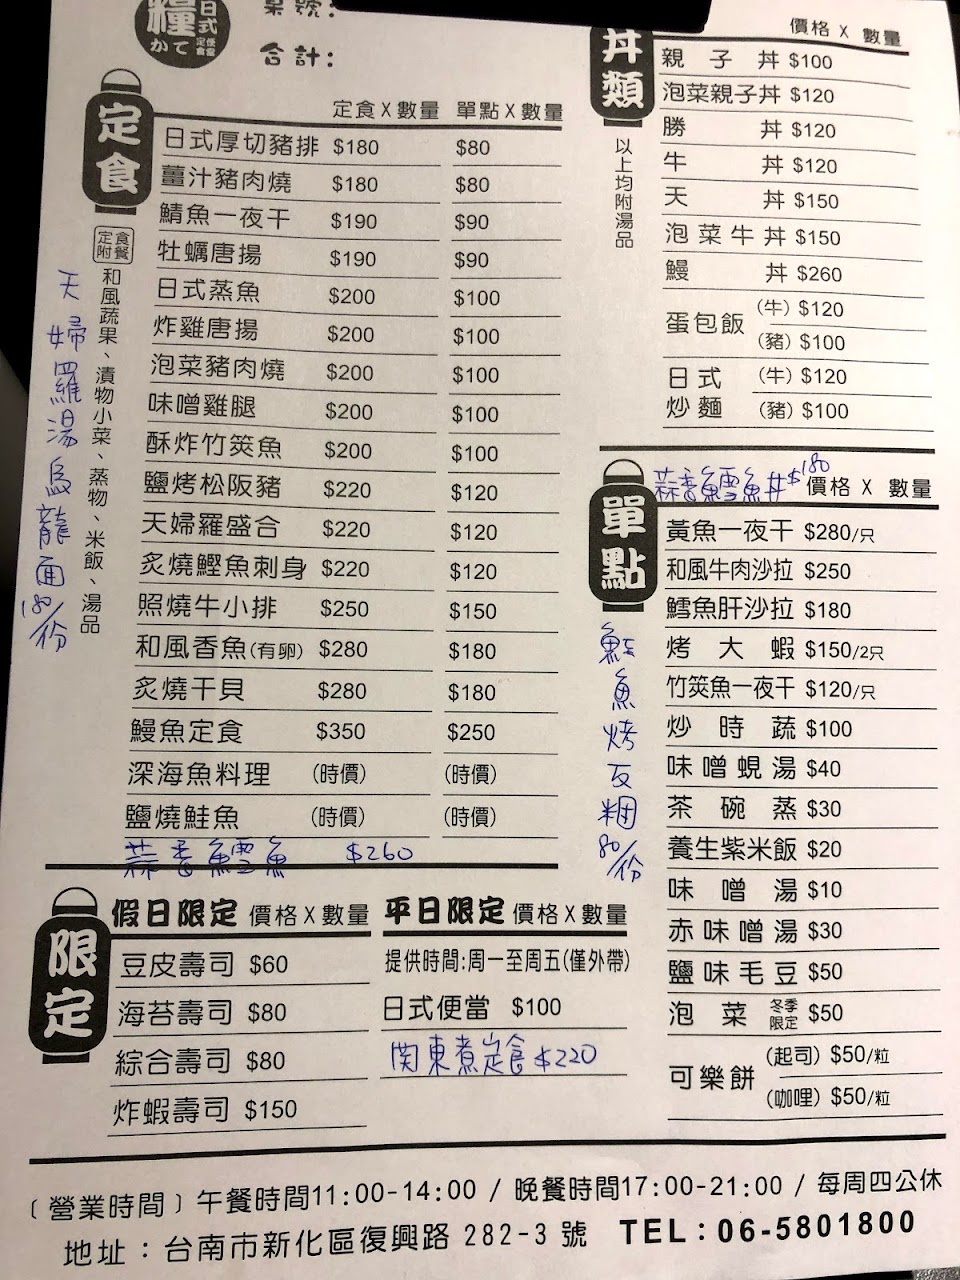 糧 日式
かて 定食 便當
桌號:
合計:
定食
定食X數量 單點X數量
日式厚切豬排 $180 $80
薑汁豬肉燒 $180 $80
鯖魚一夜干 $190 $90
牡蠣唐揚 $190 $90
日式蒸魚 $200 $100
炸雞唐揚 $200 $100
泡菜豬肉燒 $200 $100
味噌雞腿 $200 $100
酥炸竹筴魚 $200 $100
鹽烤松阪豬 $220 $120
天婦羅盛合 $220 $120
炙燒鰹魚刺身 $220 $120
照燒牛小排 $250 $150
和風香魚(有卵) $280 $180
炙燒干貝 $280 $180
鰻魚定食 $350 $250
深海魚料理 (時價) (時價)
鹽燒鮭魚 (時價) (時價)
蒜香鱈魚 $260
定食附餐
和風蔬果、漬物小菜、蒸物、米飯、湯品
天婦羅湯烏龍面180/份
丼類
以上均附湯品
價格 X 數量
親子丼 $100
泡菜親子丼 $120
勝丼 $120
牛丼 $120
天丼 $150
泡菜牛丼 $150
鰻丼 $260
蛋包飯 (牛) $120
(豬) $100
日式炒麵 (牛) $120
(豬) $100
單點
蒜香鱈魚丼$180
價格 X 數量
黃魚一夜干 $280/只
和風牛肉沙拉 $250
鱈魚肝沙拉 $180
烤大蝦 $150/2只
竹筴魚一夜干 $120/只
炒時蔬 $100
味噌蜆湯 $40
茶碗蒸 $30
養生紫米飯 $20
味噌湯 $10
赤味噌湯 $30
鹽味毛豆 $50
泡菜 冬季限定 $50
可樂餅 (起司) $50/粒
(咖哩) $50/粒
魚烤 80/份
限定
假日限定 價格X數量
豆皮壽司 $60
海苔壽司 $80
綜合壽司 $80
炸蝦壽司 $150
平日限定 價格X數量
提供時間:周一至周五(僅外帶)
日式便當 $100
関東煮定食 $220
〔營業時間〕午餐時間11:00-14:00 / 晚餐時間17:00-21:00 / 每周四公休
地址:台南市新化區復興路 282-3 號 TEL:06-5801800